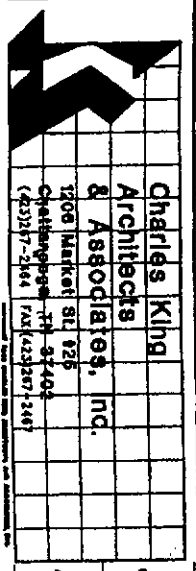 Charles King
Architects
& Associates, Inc.
1206 Market St. #26
Chattanooga, TN 37402
(423)267-2464 FAX(423)267-2467